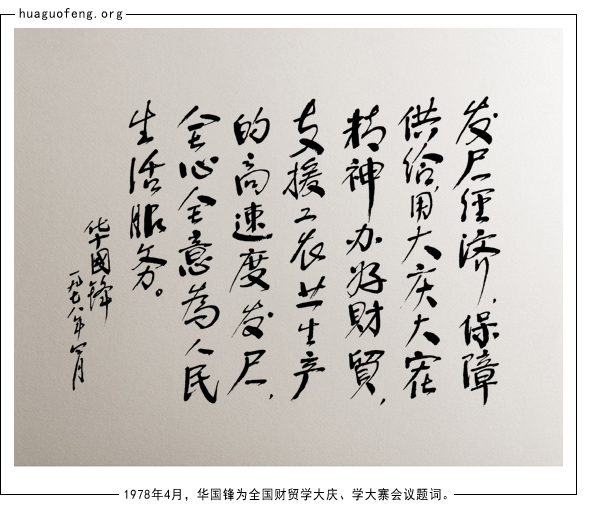 huaguofeng.org
发展經济，保障
供给，用大庆大寨
精神办好財貿，
支援工农业生产
的高速度发展，
全心全意為人民
生活服务。
华國锋
一九七八年四月
1978年4月，华国锋为全国财贸学大庆、学大寨会议题词。